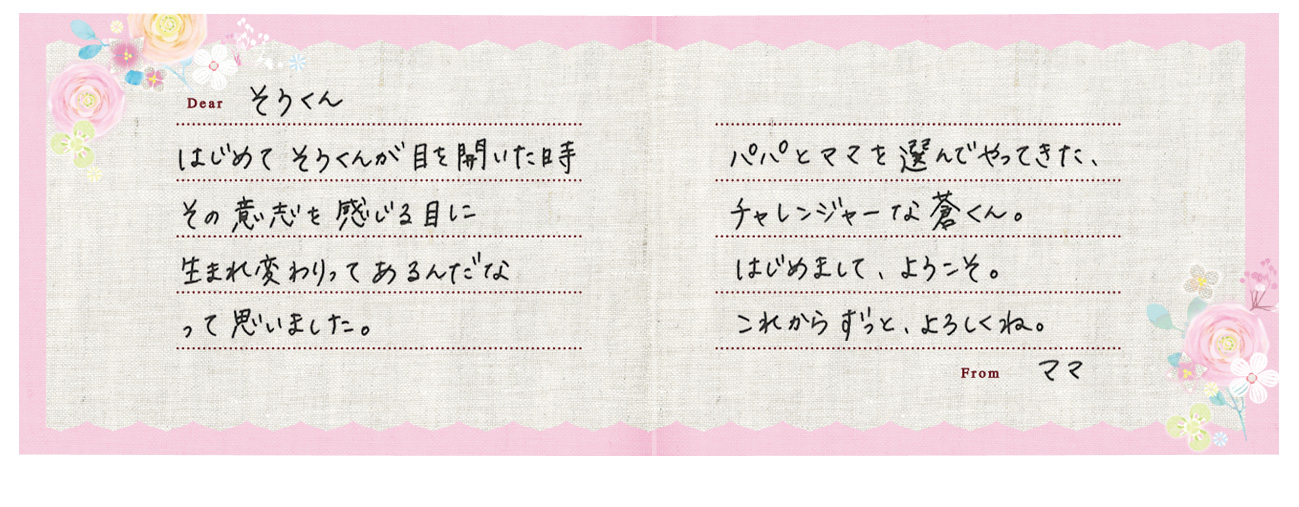 Dear そうくん
はじめて そうくんが 目を 開いた時
その 意志を 感じる 目に
生まれ変わりって あるんだな
って 思いました。
パパと ママを 選んでやってきた、
チャレンジャーな 蒼くん。
はじめまして、ようこそ。
これから ずっと、よろしくね。
From ママ